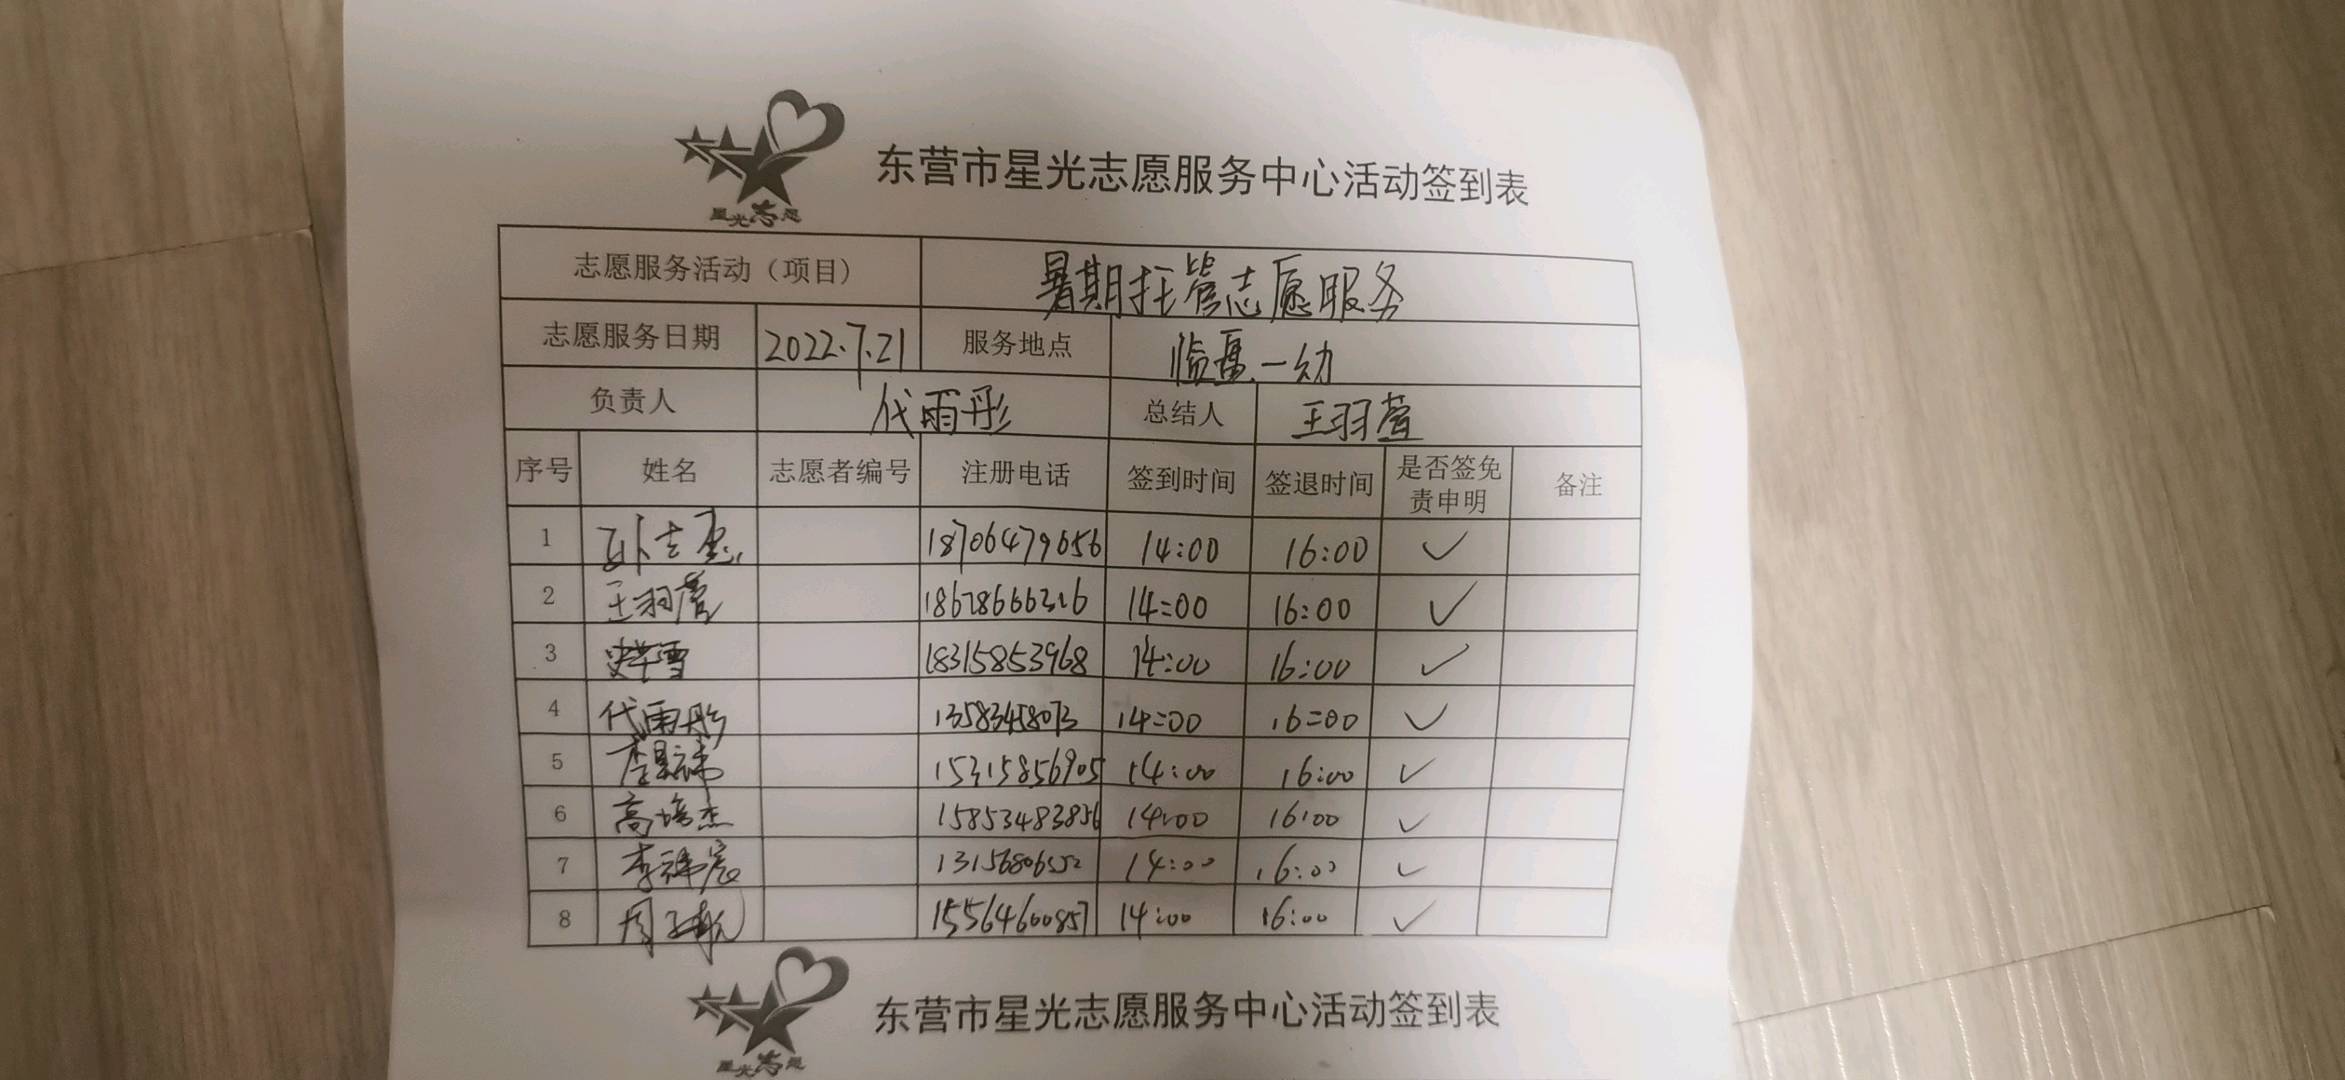 星光志愿
东营市星光志愿服务中心活动签到表
志愿服务活动（项目） 暑期托管志愿服务
志愿服务日期 2022.7.21 服务地点 临盘一幼
负责人 代雨彤 总结人 王羽萱
序号 姓名 志愿者编号 注册电话 签到时间 签退时间 是否签免责申明 备注
1 18706479656 14:00 16:00 ✓
2 王羽萱 18678666326 14:00 16:00 ✓
3 18315853968 14:00 16:00 ✓
4 代雨彤 13583458073 14:00 16:00 ✓
5 15315856905 14:00 16:00 ✓
6 高培杰 15853483856 14:00 16:00 ✓
7 李祎宸 13156806552 14:00 16:00 ✓
8 15564600857 14:00 16:00 ✓
星光志愿
东营市星光志愿服务中心活动签到表